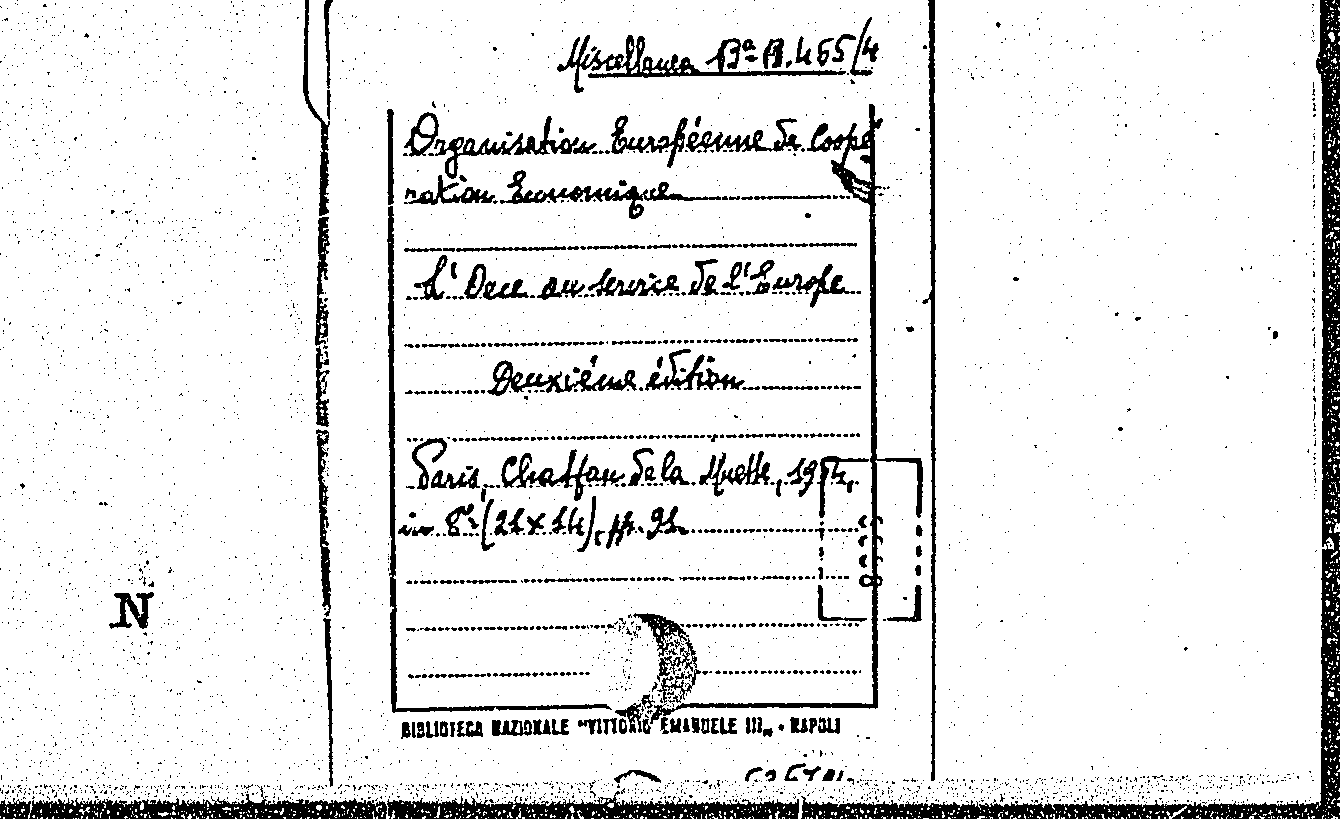 Miscellanea Bª B.465/4
Organisation Européenne de Coopé
ration Economique
L'Oece au service de l'Europe
Deuxiéme édition
Paris, Chatfau de la Muette, 1954,
in 8º (21x14), pp. 91.
N
BIBLIOTECA NAZIONALE "VITTORIO EMANUELE III„ - NAPOLI